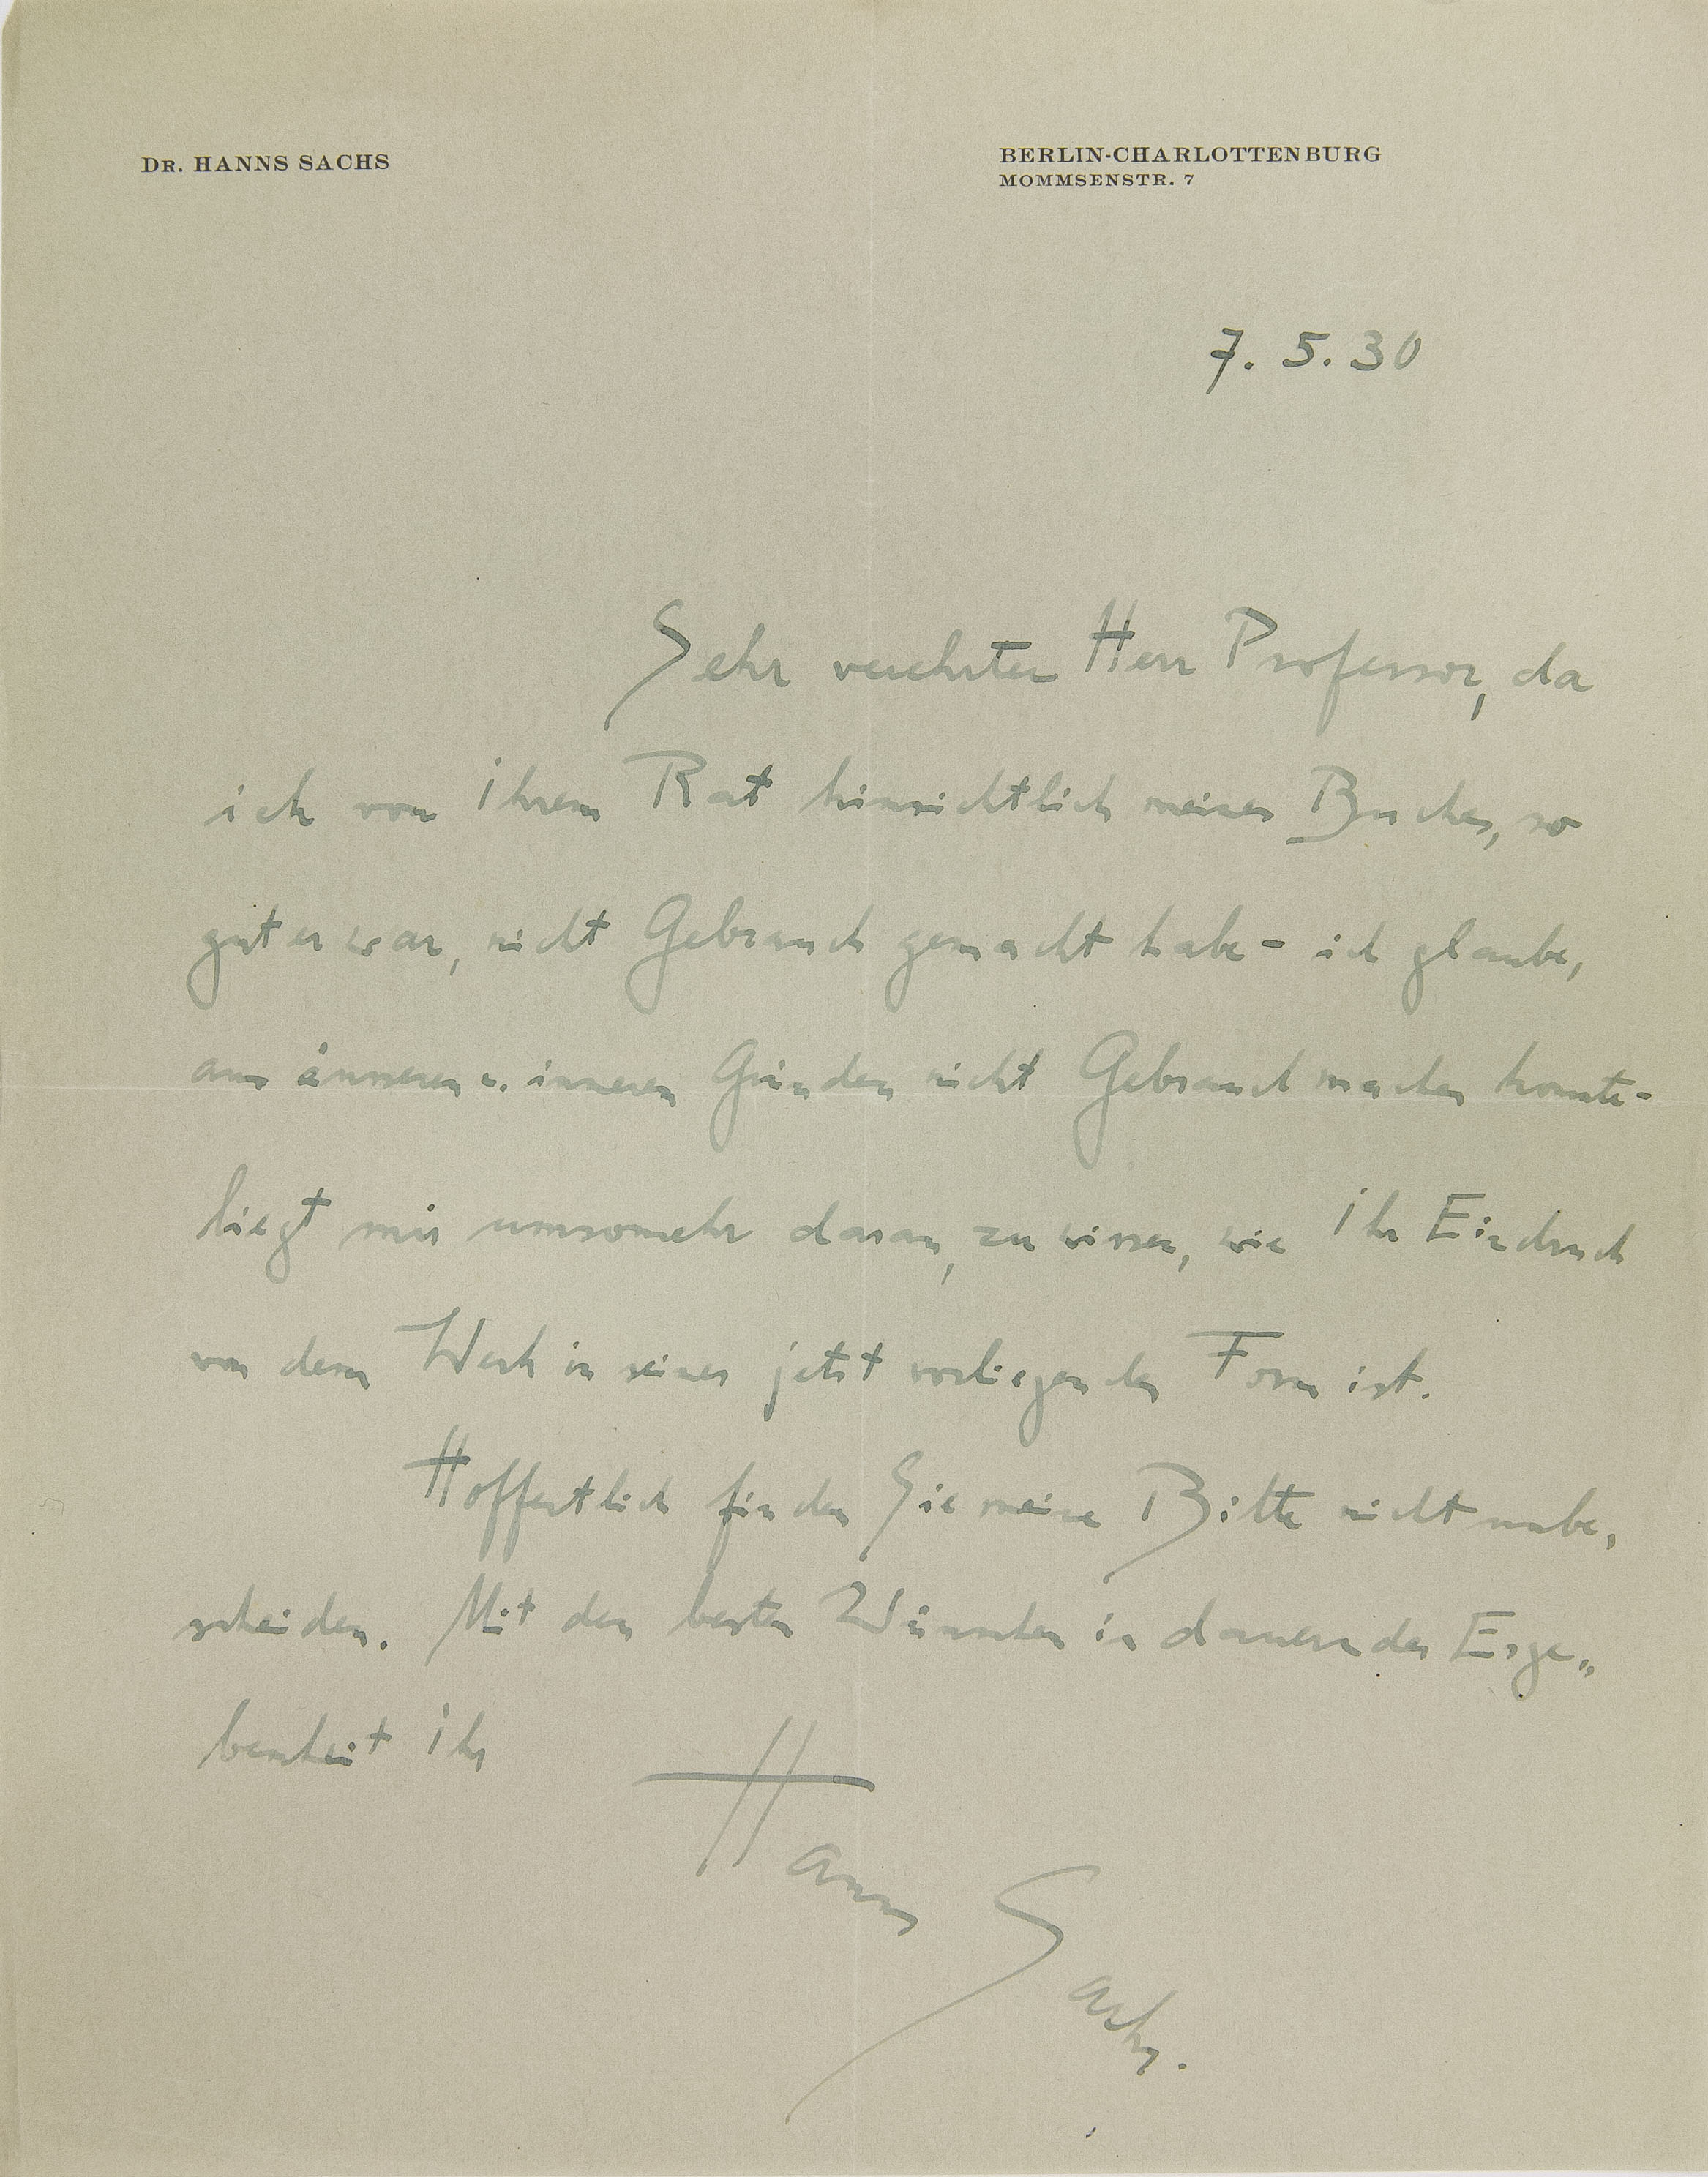 DR. HANNS SACHS
BERLIN-CHARLOTTENBURG
MOMMSENSTR. 7
7. 5. 30
Sehr verehrter Herr Professor, da
ich von Ihrem Rat hinsichtlich meines Buches, so
gut er war, nicht Gebrauch gemacht habe - ich glaube,
aus äusseren u. inneren Gründen nicht Gebrauch machen konnte -
liegt mir umsomehr daran, zu wissen, wie Ihr Eindruck
von dem Werk in seiner jetzt vorliegenden Form ist.
Hoffentlich finden Sie meine Bitte nicht unbe„
scheiden. Mit den besten Wünschen in dauernder Erge„
benheit Ihr
Hanns Sachs.